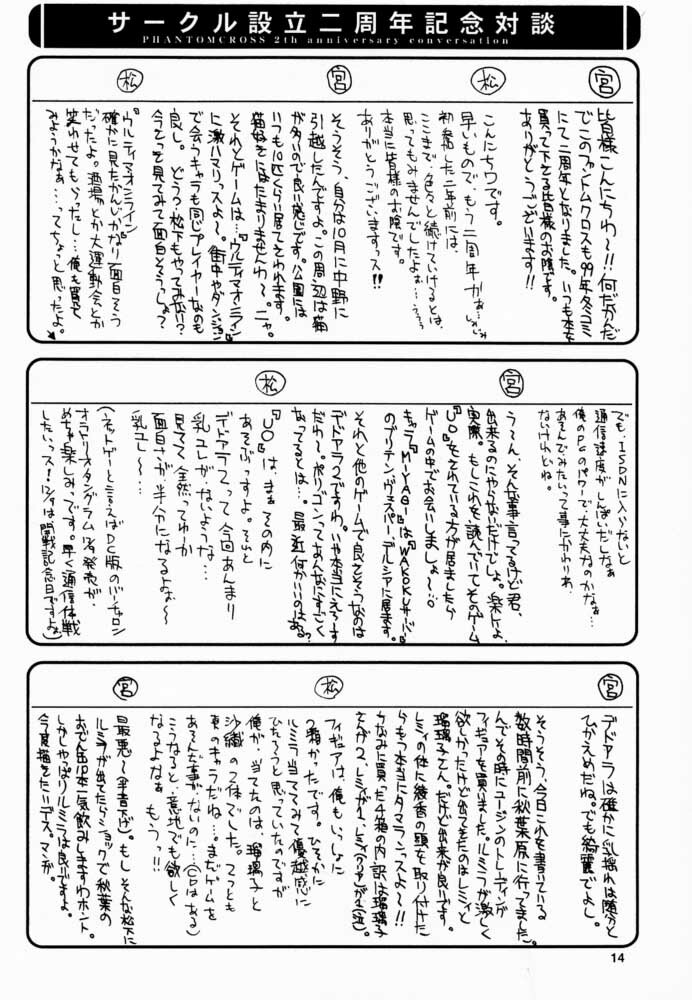 サークル設立二周年記念対談
PHANTOMCROSS 2th anniversary conversation
宮
皆様こんにちわ〜!!何だかんだ
でこのファントムクロスも99年冬コミ
にて二周年となりました。いつも本を
買って下さる皆様のお陰です。
ありがとうございます!!
松
こんにちワです。
早いもので、もう二周年かぁ…しみじみ
初発した二年前には、
ここまで色々と続けていけるとは、
思ってもみませんでしたよぉ…
本当に皆様のお陰です。
ありがとうございますっス!!
宮
そうそう、自分は10月に中野に
引越したんですよ。この周辺は猫
が多いので良い感じです。公園には
いつも10匹くらい居てそそわれます。
猫好きにはたまりませんわ〜。ニャ。
それとゲームは…『ウルティマオンライン』
に激ハマリっスよ〜。街中やダンジョン
で会うキャラも同じプレイヤーなのも
良し。どう?松下もやってみない?
今そっと見てみて面白そうっしょ?
松
『ウルティマオンライン』
確かに見たかんじかなり面白そう
だったよ。酒場とか大運動会とか
笑わせてもらったし…俺も買って
みようかなぁ…ってちょっと思ったよ。
でも、ISDNに入らないと
通信速度がしんぱいだしなぁ
俺のPCのパワーで大丈夫なのかなぁ…
あそんでみたいって事にかわりわ、
ないけれどね。
宮
う〜ん、そんな事言ってるけど君、
出来るのにやらないだけでしょ。楽しいよ
実際。もしこれを読んでいてそのゲーム
『UO』をされている方が居ましたら
ゲームの中でお会いしましょ〜!○
キャラ『MIYABI』は『WAKOKUサーバー』
のブリテン、ヴェスパー、デルシアに居ます。
それと他のゲームで良さそうなのは
デドアラ2ですわ。いや本当にえろーす
だわ〜。ポリゴンってあんなにすごく
なってるとは…。最近何かいいのはある?
松
『UO』は、まぁその内に
あそぶっすよ。それと
デドアラ2って今回あんまり
乳ユレがないような…
見てて全然ってゆーか
面白さが半分になるよねぇ〜
乳ユレ〜…
(ネットゲーと言えばDC版のバーチャロン
オラトリオタングラム12/9発売が、
めちゃ楽しみっです。早く通信対戦
したいっス!12/9は開戦記念日ですよぉ)
宮
デドアラは確かに乳揺れは随分と
ひかえめだね。でも綺麗でよし。
そうそう、今日これを書いている
数時間前に秋葉原に行ってました。
んでその時にユージンのトレーディング
フィギュアを買いました。ルミラが激しく
欲しかったけど出てきたのはレミィと
瑠璃子さん。だけど出来が良いです。
レミィの体に綾香の頭を取り付けた
らもう本当にタマランっスよ〜!!
ちなみに買った4箱の内訳は瑠璃子
さんが2、レミィが1、レミィ(制服)が1(泣)。
松
フィギュアは、俺もいっしょに
2箱かったです。ひそかに
ルミラ当ててみて優越感に
ひたろうと思っていたのですが
俺が、当てたのは、瑠璃子と
沙織の2体でした。てつとも
東のキャラだね…まだゲームを
あそんだ事がないのに…(CDはある)
こうなると、意地でも欲しく
なるよなぁ もうっ!!
宮
最悪〜(半音下げ)。もし、そんな松下に
ルミラが出てたらショックで秋葉の
おでん缶10本一気飲みしますわホント。
しかしやっぱりルミラは良いですよ。
今度描きたいデス。マジが。
14